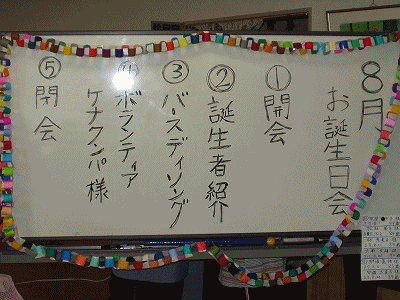 8月、
お誕生日会
①開会
②誕生者紹介
③バースディソング
④ボランティア
ケナクンパ様
⑤閉会